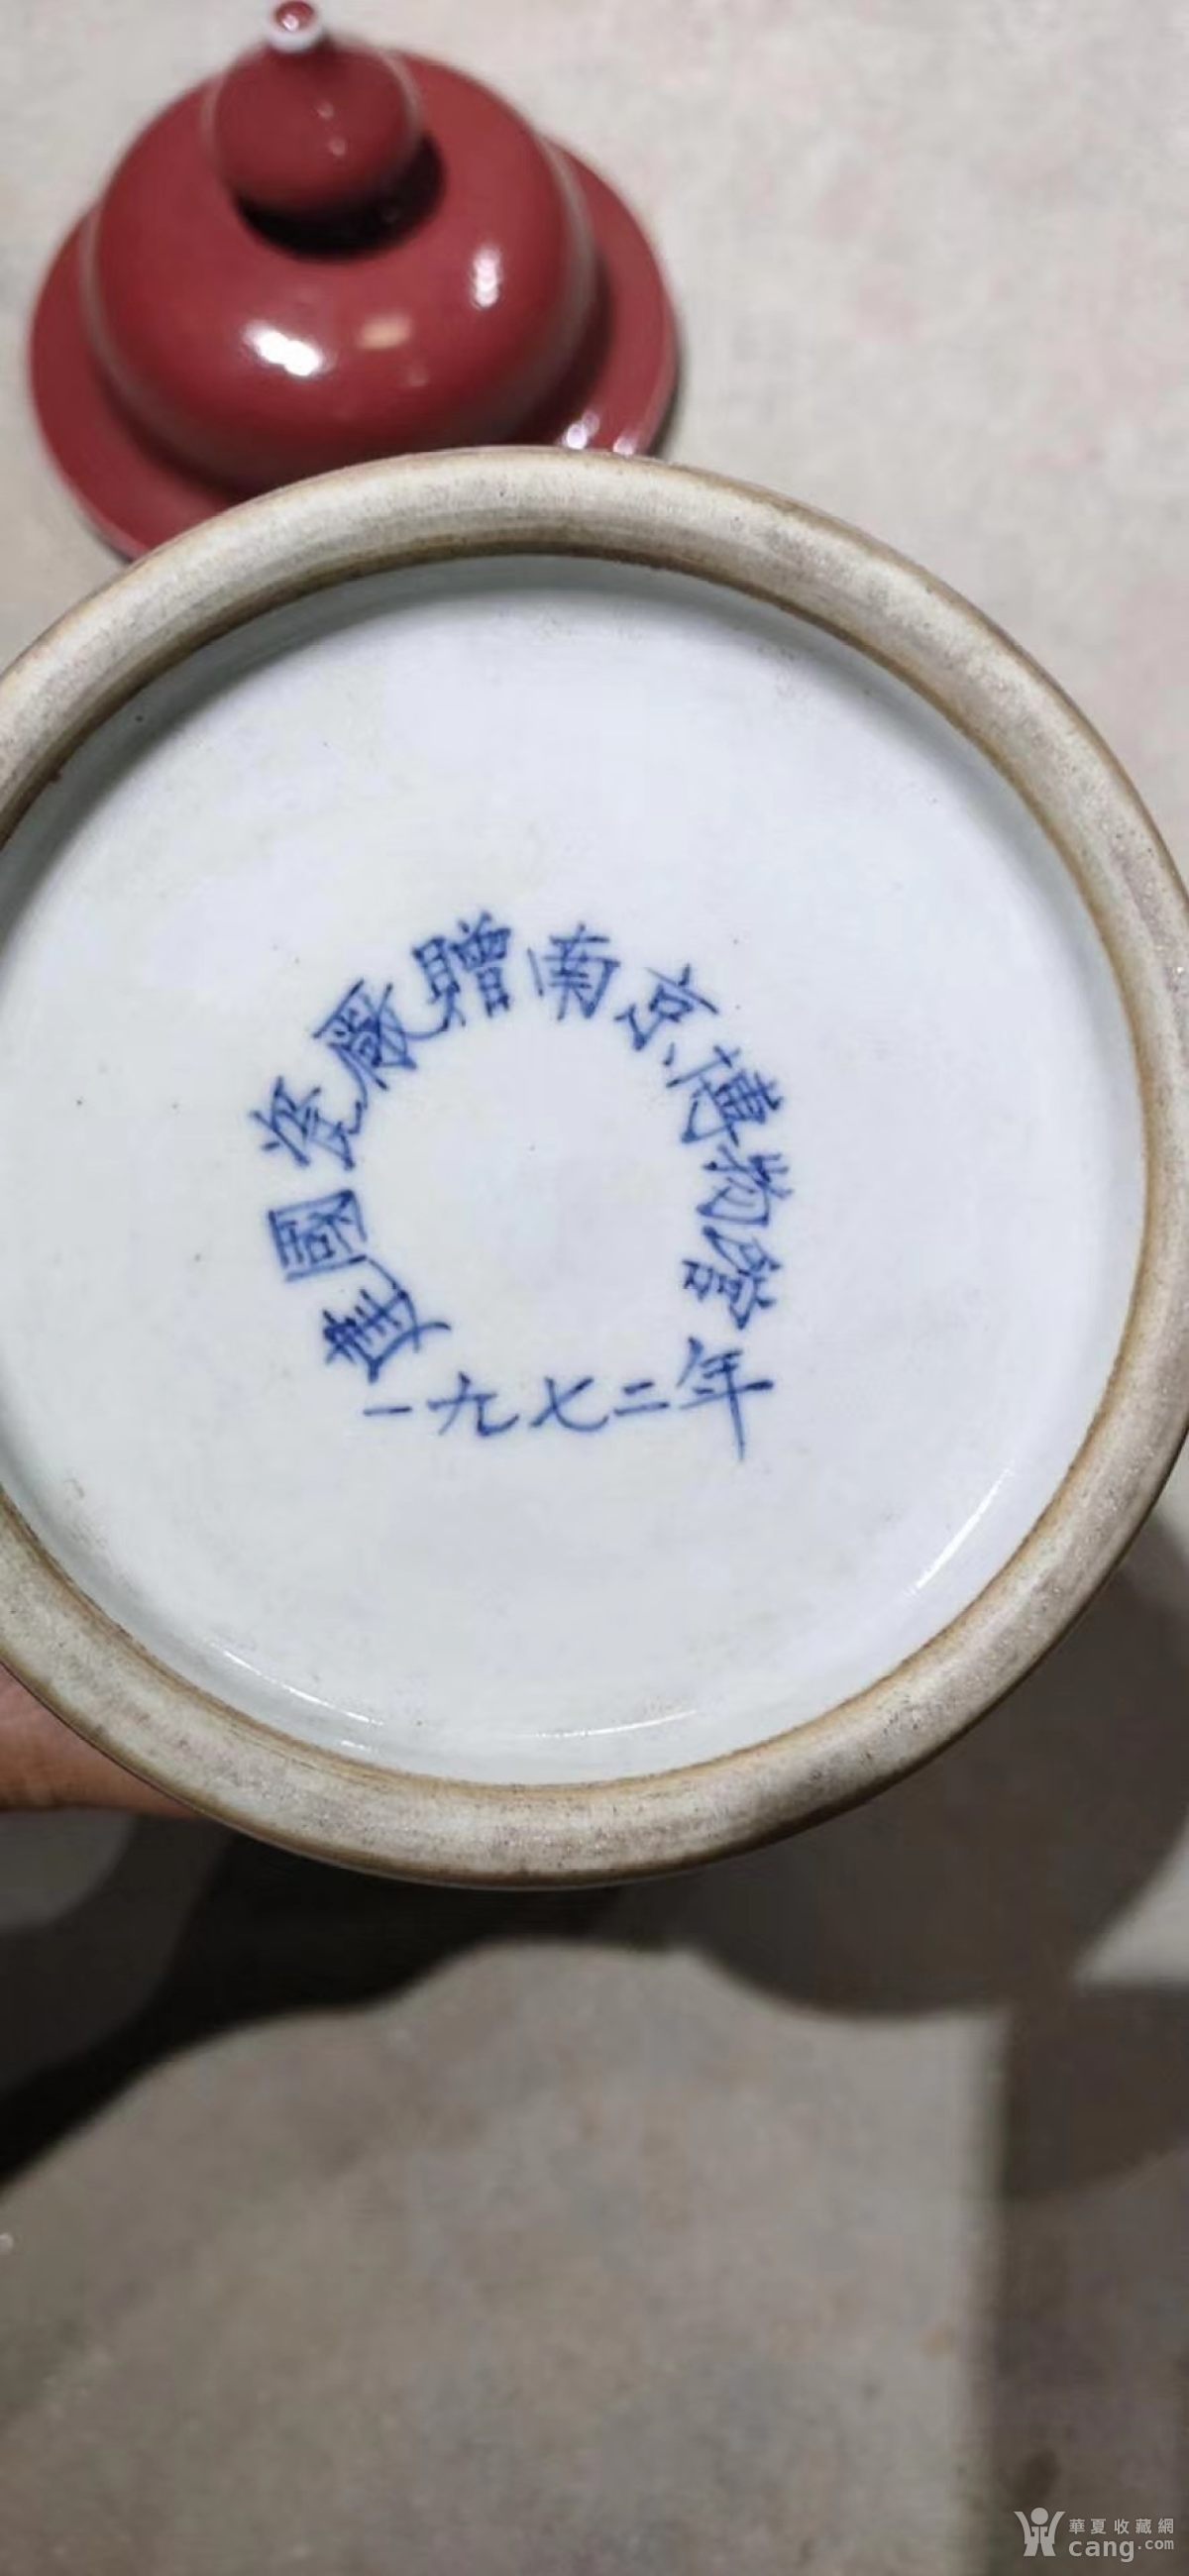 建國瓷厰贈南京博物舘
一九七二年
華夏收藏網
cang.com